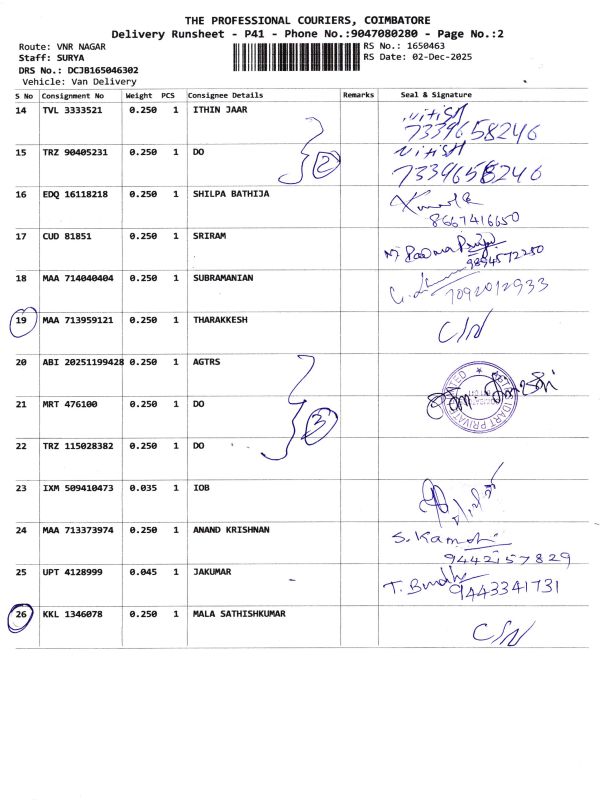 THE PROFESSIONAL COURIERS, COIMBATORE
Delivery Runsheet - P41 - Phone No.:9047080280 - Page No.:2
Route: VNR NAGAR
RS No.: 1650463
Staff: SURYA
RS Date: 02-Dec-2025
DRS No.: DCJB165046302
Vehicle: Van Delivery
S No Consignment No Weight PCS Consignee Details Remarks Seal & Signature
14 TVL 3333521 0.250 1 ITHIN JAAR Nitish
7339658246
15 TRZ 90405231 0.250 1 DO 2 Nitish
7339658246
16 EDQ 16118218 0.250 1 SHILPA BATHIJA
8667416650
17 CUD 81851 0.250 1 SRIRAM
9894572250
18 MAA 714040404 0.250 1 SUBRAMANIAN
7092012933
19 MAA 713959121 0.250 1 THARAKKESH C/N
20 ABI 20251199428 0.250 1 AGTRS
21 MRT 476100 0.250 1 DO 3
22 TRZ 115028382 0.250 1 DO
23 IXM 509410473 0.035 1 IOB
24 MAA 713373974 0.250 1 ANAND KRISHNAN S. Kamatchi
9442157829
25 UPT 4128999 0.045 1 JAKUMAR
9443341731
26 KKL 1346078 0.250 1 MALA SATHISHKUMAR C/N